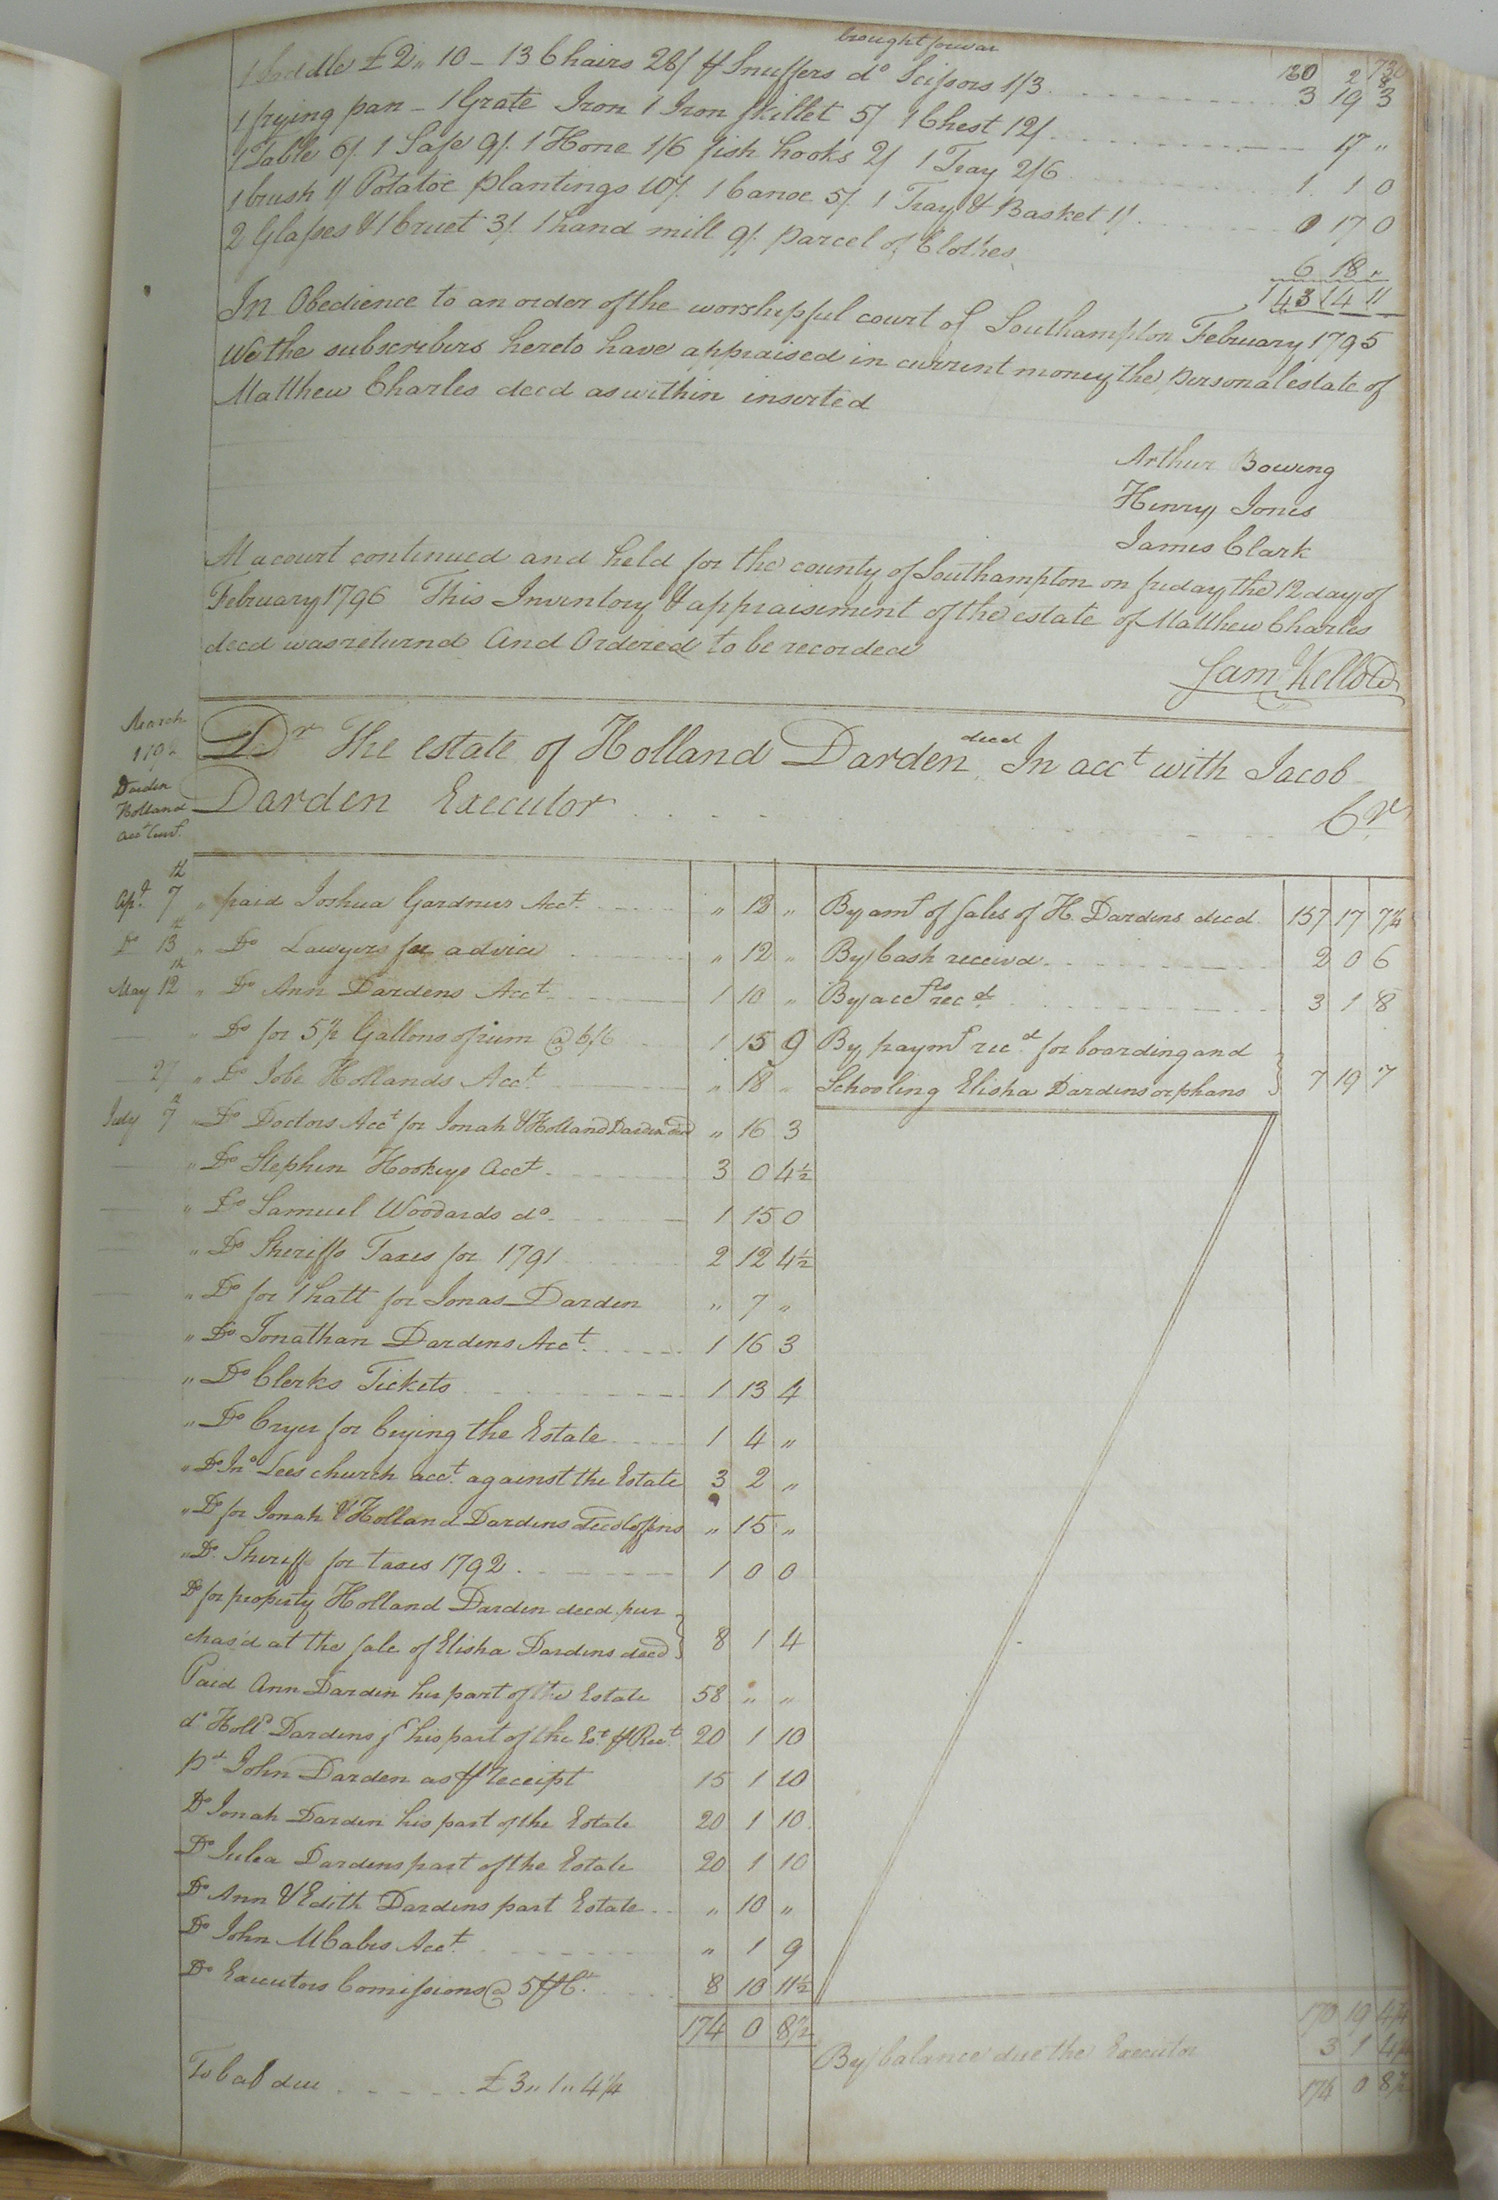 brought forwar
1 Saddle £2,, 10 - 13 Chairs 26/ ⅌ Snuffers do Scissors 1/3 130 2 8
1 frying pan - 1 Grate Iron 1 Iron skillet 5/ 1 Chest 12/ 3 19 3
1 Table 6/. 1 Safe 9/. 1 Hone 1/6 fish hooks 2/ 1 Tray 2/6 17 "
1 brush 1/ Potatoe plantings 10/. 1 Canoe 5/. 1 Tray & Basket 1/. 1 1 0
2 Glasses & 1 Cruet 3/. 1 hand mill 9/. parcel of Clothes 0 17 0
6 18 "
143 14 11
In Obedience to an order of the worshipful court of Southampton February 1795
We the subscribers hereto have appraised in current money the personal estate of
Matthew Charles decd as within inserted
Arthur Bowing
Henry Jones
James Clark
At a court continued and held for the county of Southampton on friday the 12 day of
February 1796 This Inventory & appraisement of the estate of Matthew Charles
decd was returnd And Ordered to be recorded
Sam Kello
March
179
Darden
Holland
Acct Curt.
Dr The estate of Holland Darden decd In acct with Jacob
Darden Executor Cr
Apl. 7th " paid Joshua Gardners Acct. " 13 " By amt of sales of H. Dardens decd. 157 17 7¼
Do 13th " Do Lawyers fee advice " 12 " By Cash received 2 0 6
May 12th " Do Ann Dardens Acct. 1 10 " By accts recd 3 1 8
" Do for 5½ Gallons of rum @ 6/6 1 15 9 By paymt recd for boarding and
27 " Do Jobe Hollands Acct. " 18 " Schooling Elisha Dardens orphans 7 19 7
July 7th " Do Doctors Acct for Jonah & Holland Darden decd " 16 3
" Do Stephen Hookeys Acct. 3 0 4½
" Do Samuel Woodards do. 1 15 0
" Do Sheriffs Taxes for 1791 2 12 4½
" Do for 1 hatt for Jonas Darden " 7 "
" Do Jonathan Dardens Acct. 1 16 3
" Do Clerks Tickets 1 13 4
" Do Cryer for Crying the Estate 1 4 "
" Do Jno Lees church acct. against the Estate 3 2 "
" Do for Jonah & Holland Dardens decd Coffins " 15 "
" Do. Sheriff for taxes 1792. 1 0 0
Do for property Holland Darden decd pur
chas'd at the sale of Elisha Dardens decd 8 1 4
Paid Ann Darden her part of the Estate 58 " "
do Holld Dardens his part of the Est. ⅌ Rect. 20 1 10
pd John Darden as ⅌ receipt 15 1 10
Do Jonah Darden his part of the Estate 20 1 10
Do Julea Dardens part of the Estate 20 1 10
Do Ann & Edith Dardens part Estate " 10 "
Do John McCabes Acct. " 1 9
Do Executors Comissions @ 5 ⅌ Ct. 8 10 11½
174 0 8½ 170 19 4¼
By balance due the Executor 3 1 4¼
To bal due £3,, 1,, 4¼ 174 0 8½